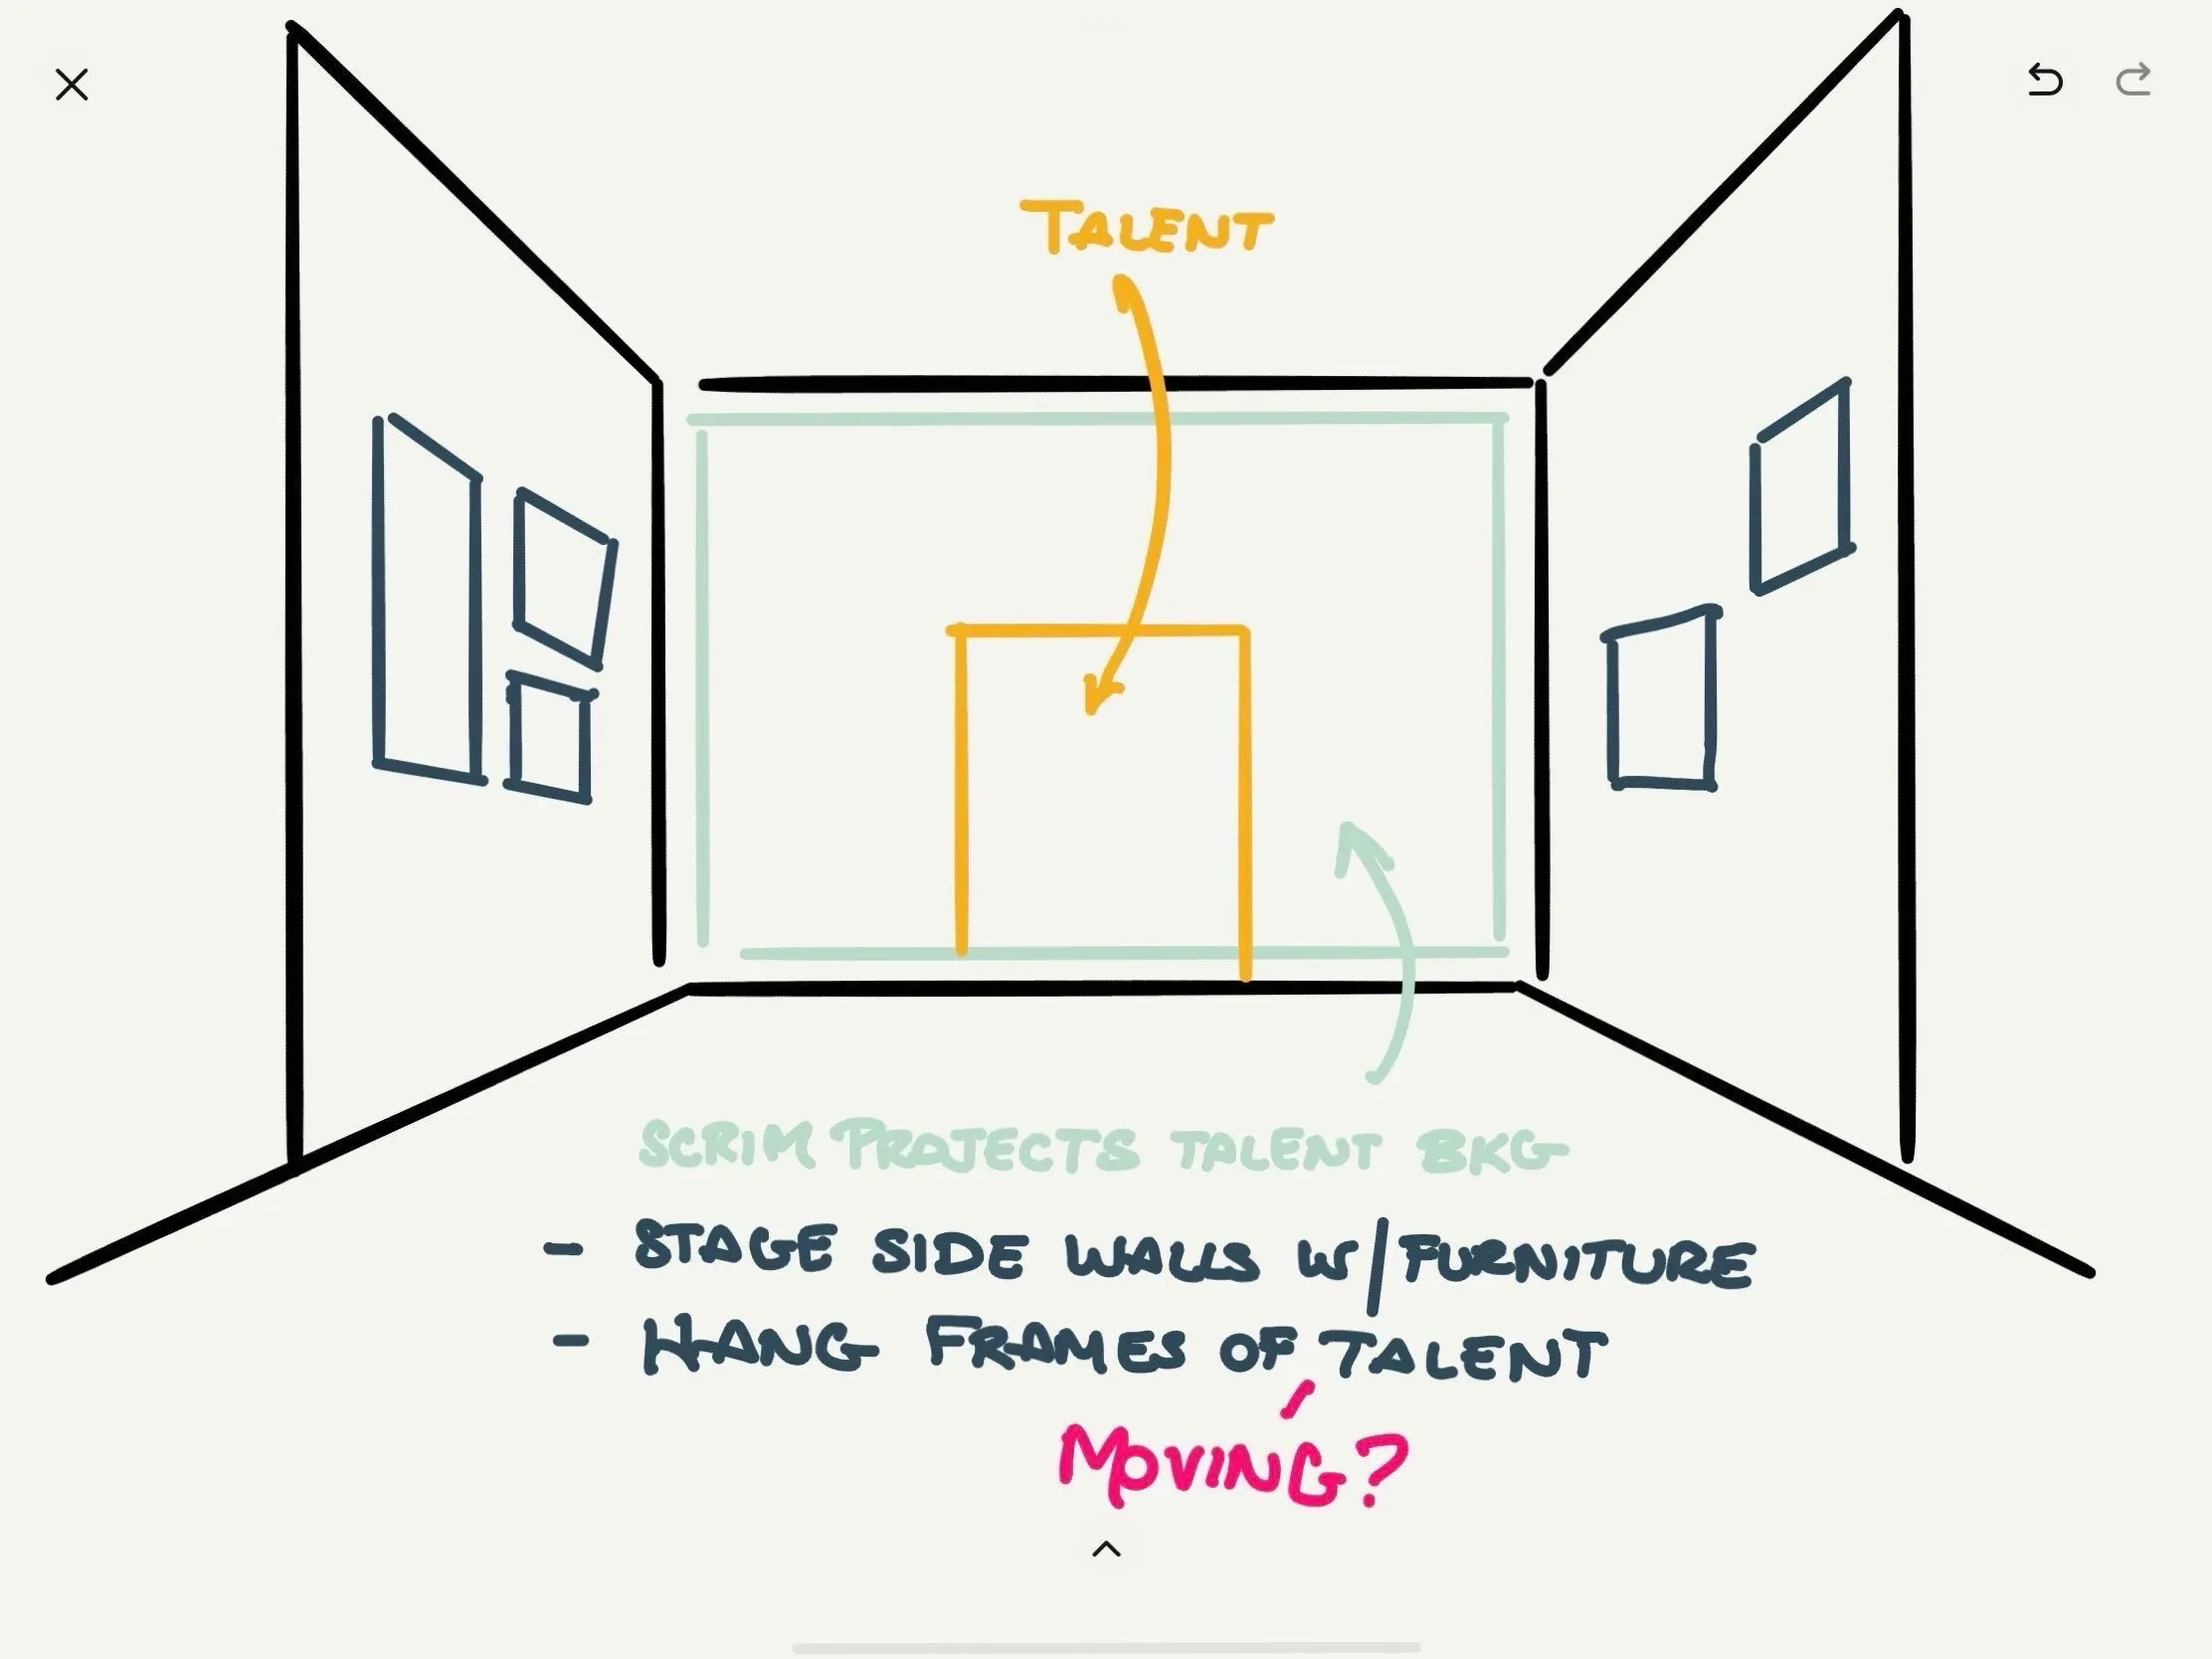 TALENT
SCRIM PROJECTS TALENT BKG
- STAGE SIDE WALLS W/FURNITURE
- HANG FRAMES OF TALENT
MOVING?